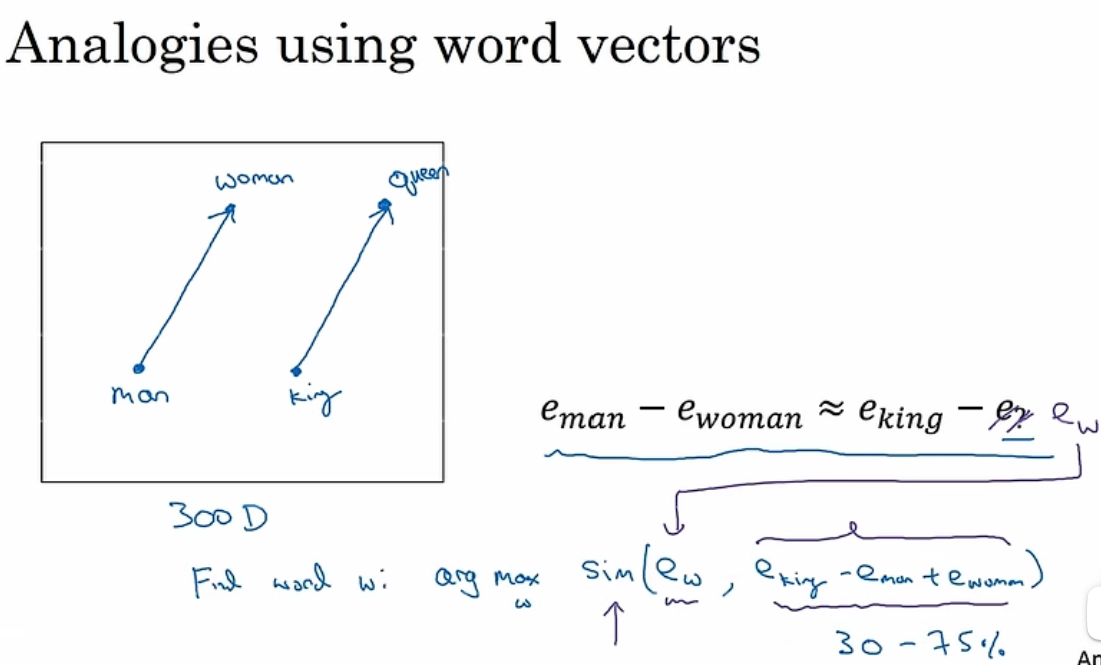 Analogies using word vectors
woman queen
man king
e_man − e_woman ≈ e_king − e_? e_w
300 D
Find word w: arg max_w sim(e_w, e_king - e_man + e_woman)
30 - 75%